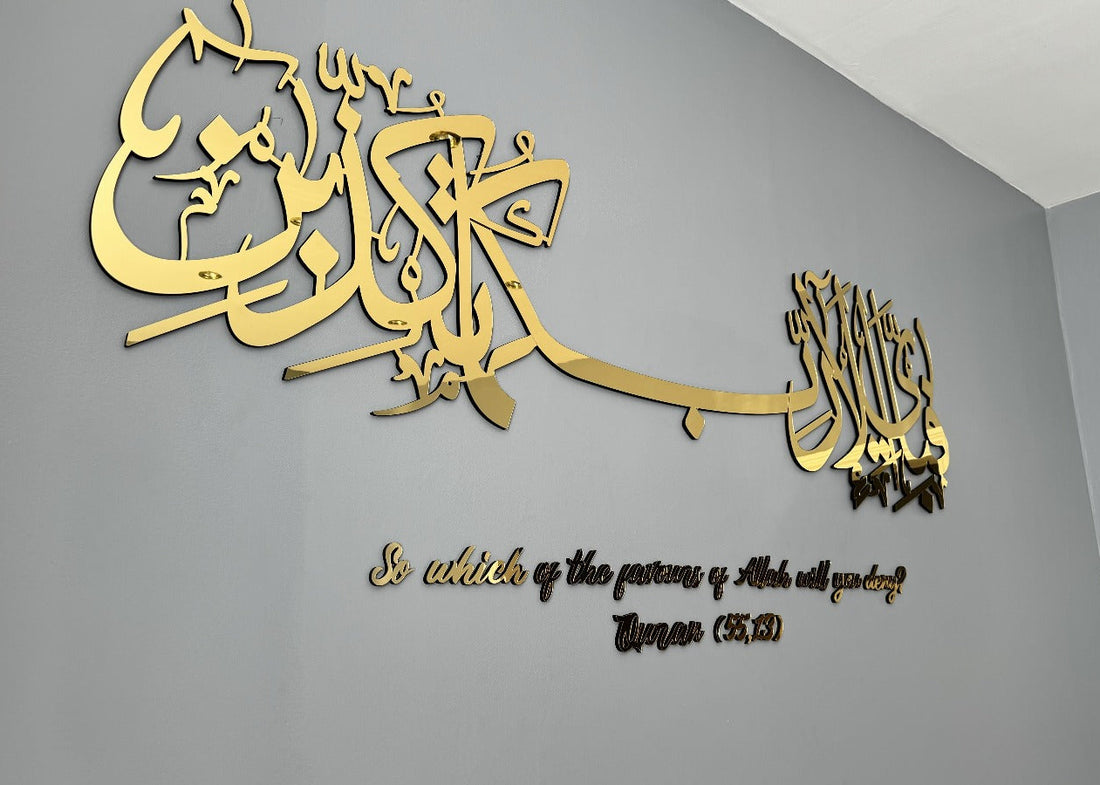 فبأي آلاء ربكما تكذبان
So which of the favours of Allah will you deny?
Quran (55,13)